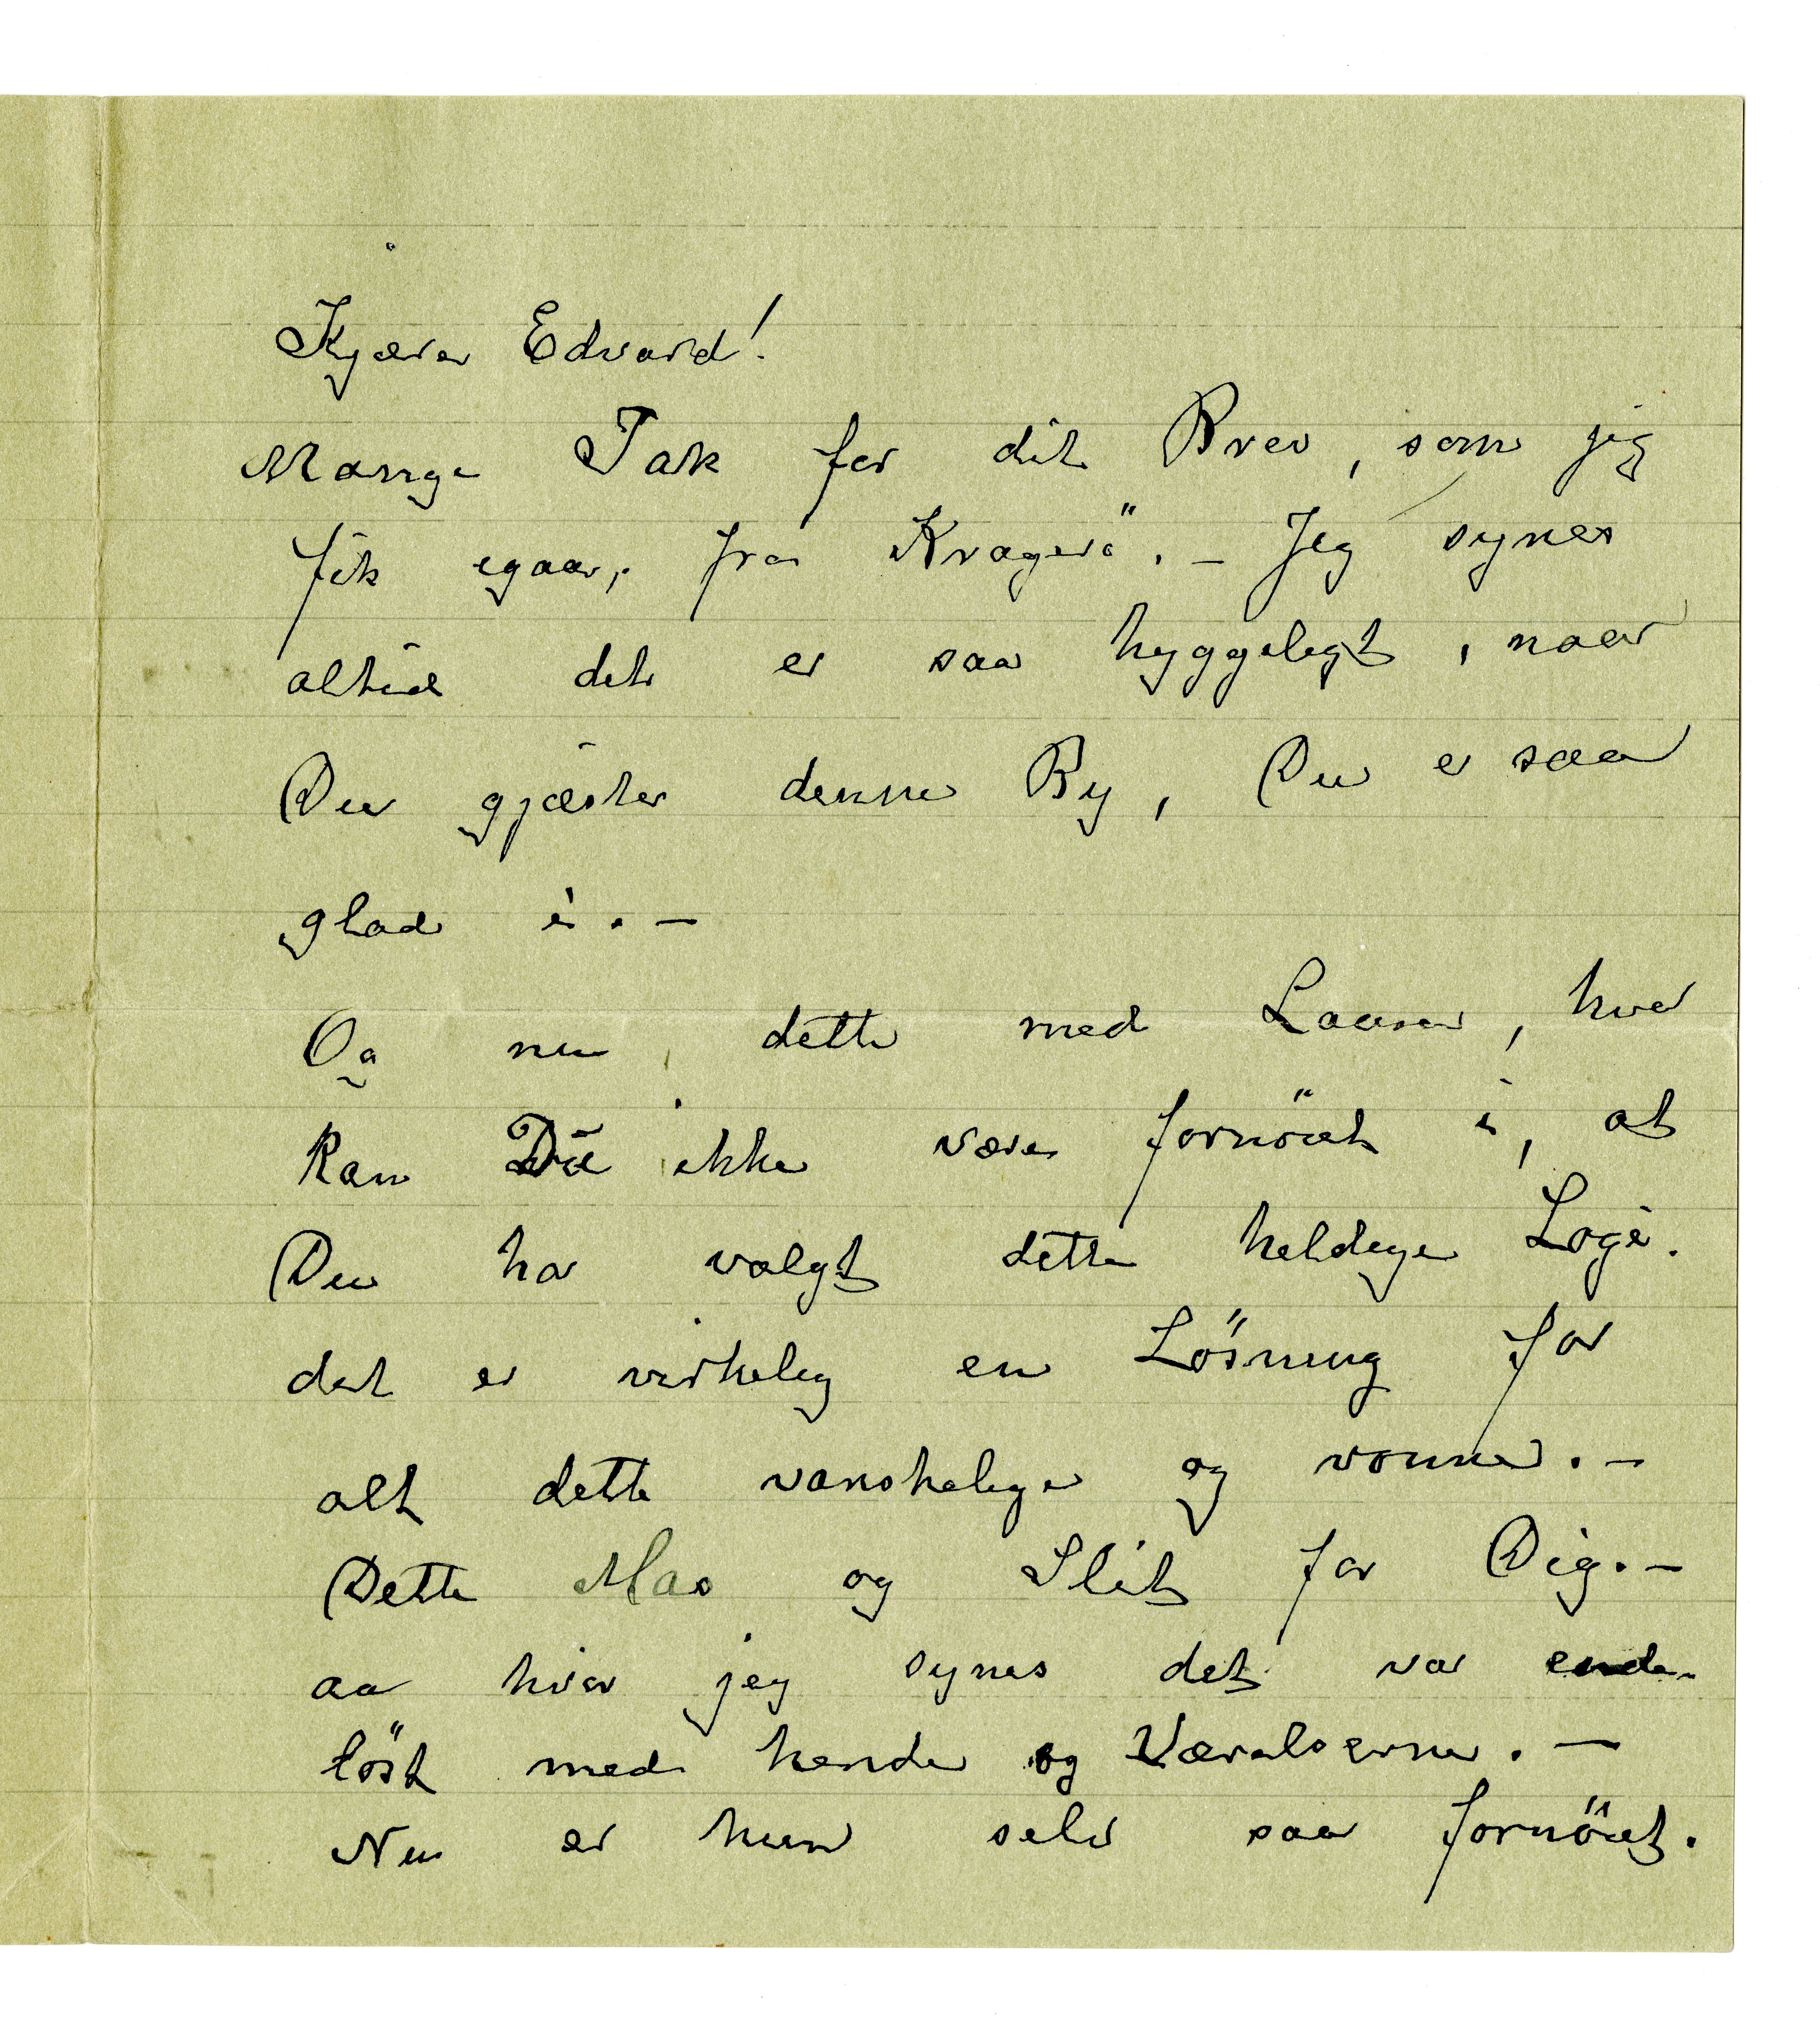 Kjære Edvard!
Mange Tak for dit Brev, som jeg
fik igaar, fra Kragerö. – Jeg synes
altid det er saa hyggeligt, naar
Du gjæster denne By, Du er saa
glad i. –
Og nu dette med Laura, hvor
kan Du ikke være fornöiet i, at
Du har valgt dette heldige Logi.
det er virkelig en Lösning for
alt dette vanskelige og vonne. –
Dette Mas og Slit for Dig. –
aa hvor jeg synes det var ende-
löst med hende og Værelserne. –
Nu er hun selv saa fornöiet.